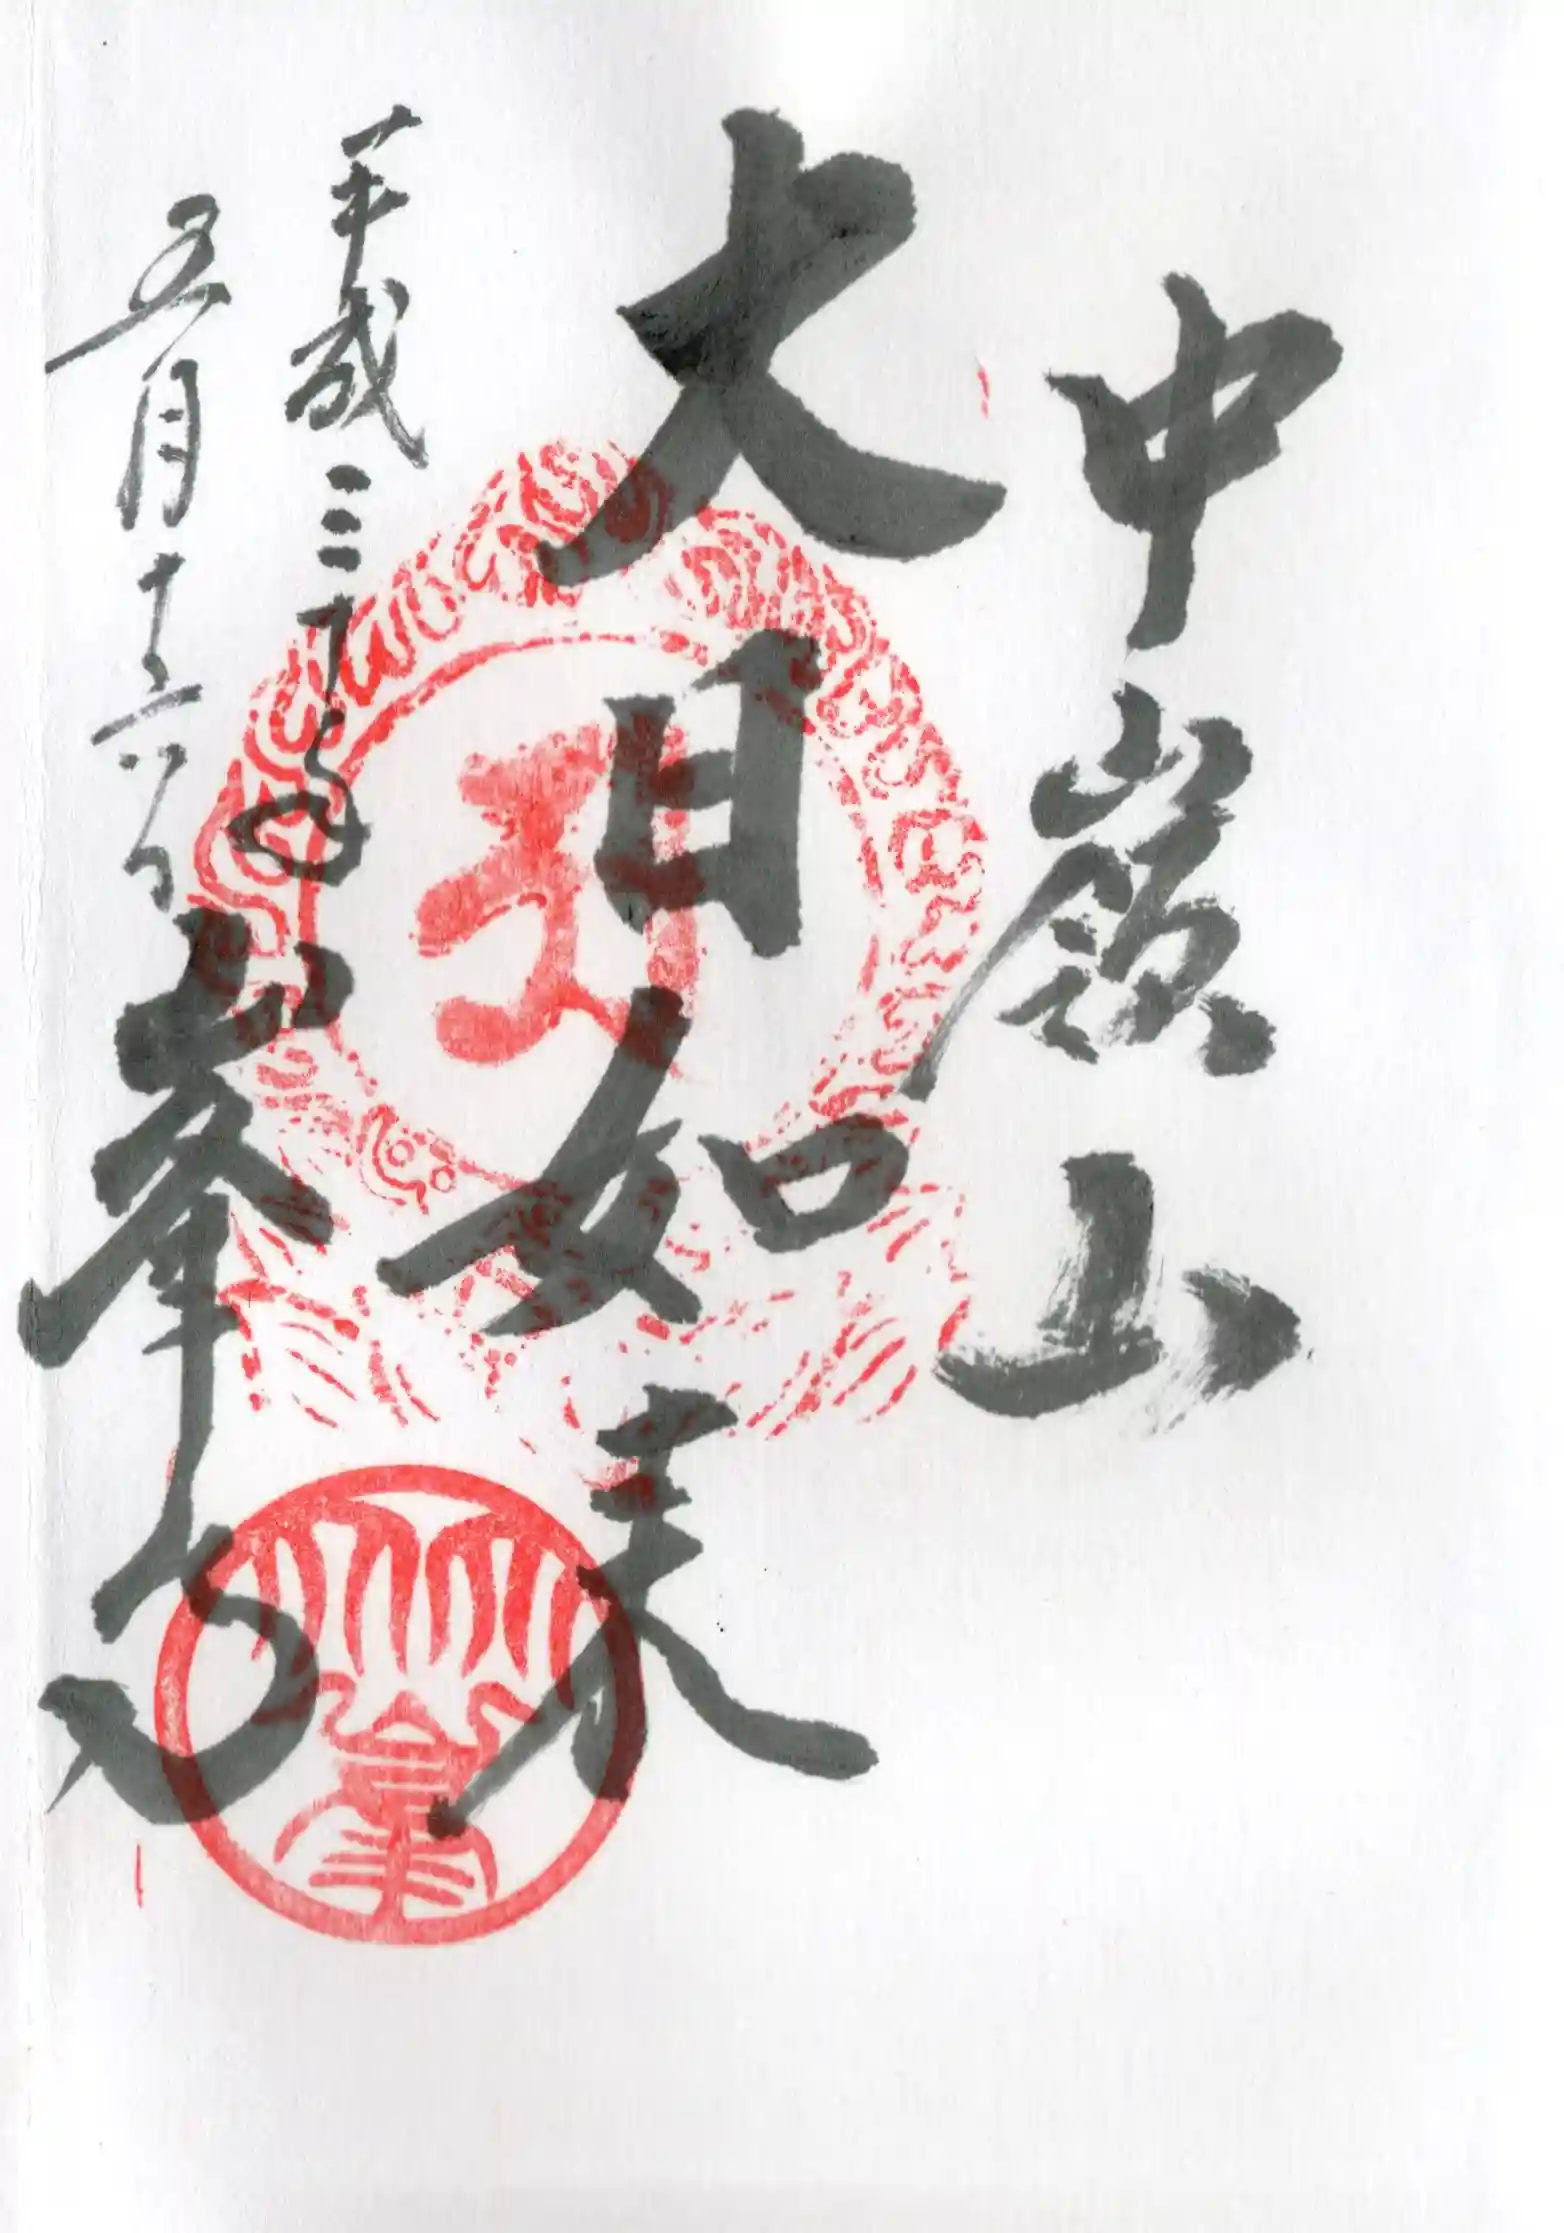 中嶺山
大日如来
平成三十年
五月十六日
峯寺